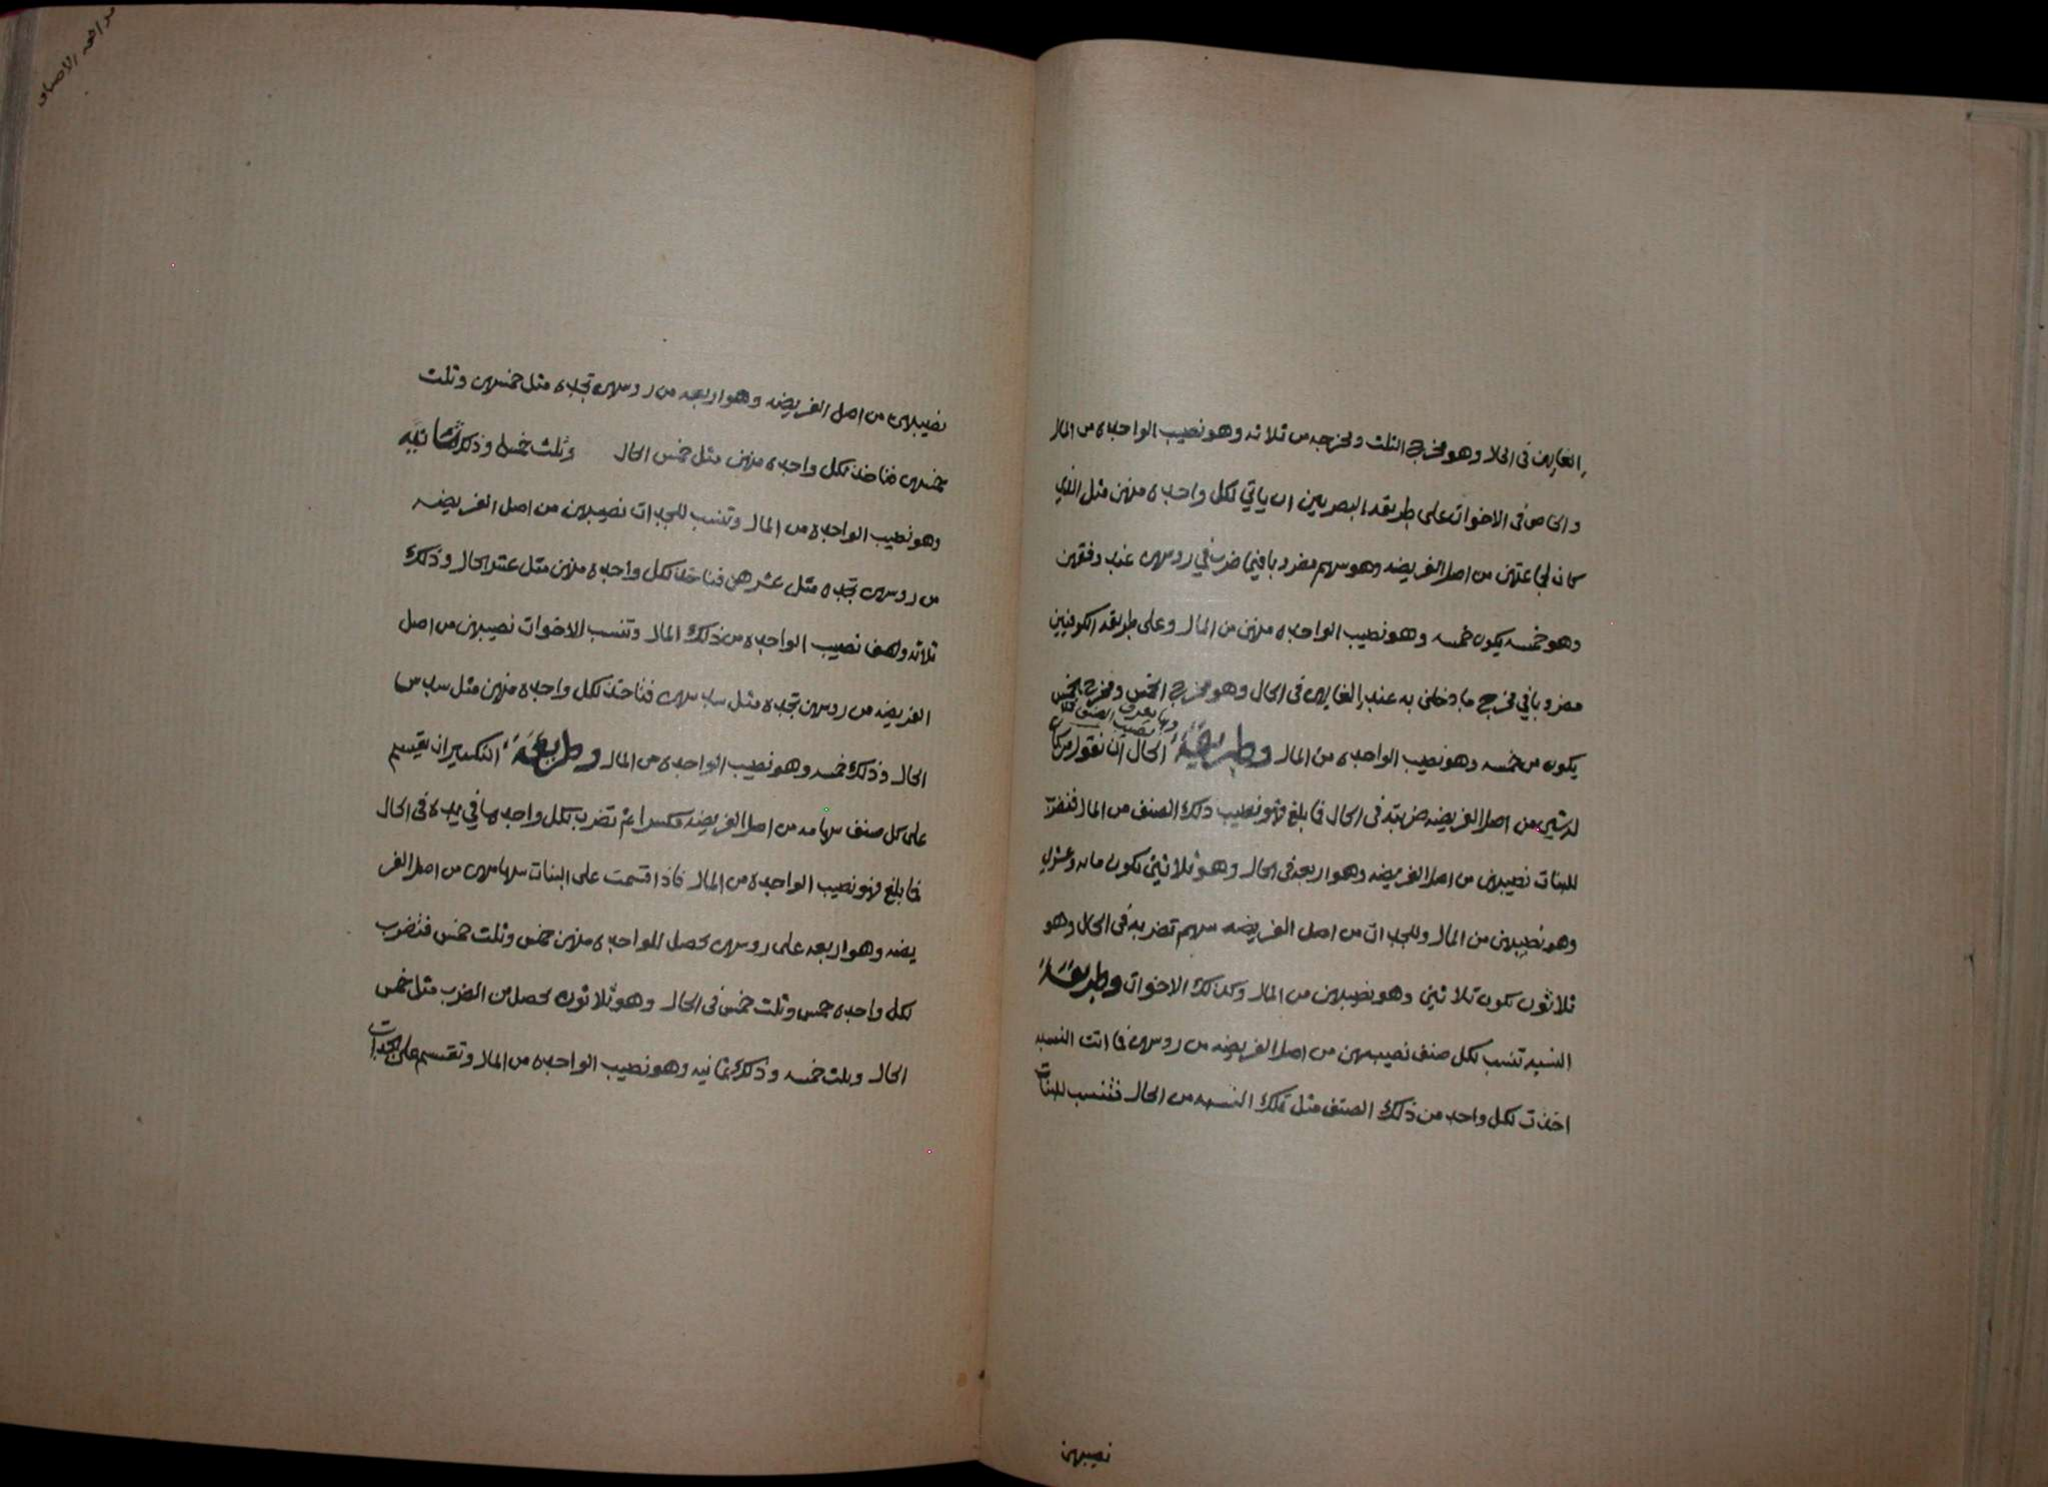 الغايبين في الحال وهو مخرج الثلث ومخرجه من ثلاثه وهو نصيب الواحده من المال
والخاص في الاخوات على طريقه البصريين ان ياتي لكل واحده منهن مثل الذي
كان لجماعتهن من اصل الفريضه وهو سهم مضروبا فيما ضرب في روسهن عند وفقهن
وهو خمسه يكون خمسه وهو نصيب الواحده منهن من المال وعلى طريقه الكوفيين
مضروبا في مخرج ما دخلن به عند الغايبين في الحال وهو مخرج الخمس ومخرج الخمس
يكون من خمسه وهو نصيب الواحده من المال وطريقة الحال ان نقول من كان
له شي من اصل الفريضه ضربته في الحال فما بلغ فهو نصيب ذلك الصنف من المال فتضرب
للبنات نصيبهن من اصل الفريضه وهو اربعه في الحال وهو ثلاثين يكون مايه وعشرين
وهو نصيبهن من المال وللجدات من اصل الفريضه سهم تضربه في الحال وهو
ثلاثون يكون ثلاثين وهو نصيبهن من المال وكذلك الاخوات وطريقة
النسبه تنسب لكل صنف نصيبهن من اصل الفريضه من روسهن فما اتت النسبه
اخذت لكل واحد من ذلك الصنف مثل تلك النسبه من الحال فتنسب للبنات
نصيبهن
نصيبهن من اصل الفريضه وهو اربعه من روسهن تجده مثل خمسهن وثلث
خمسهن فتاخذ لكل واحده منهن مثل خمس الحال وثلث خمسه وذلك ثمانيه
وهو نصيب الواحده من المال وتنسب للجدات نصيبهن من اصل الفريضه
من روسهن تجده مثل عشرهن فتاخذ لكل واحده منهن مثل عشر الحال وذلك
ثلاثه وهو نصيب الواحده من ذلك المال وتنسب الاخوات نصيبهن من اصل
الفريضه من روسهن تجده مثل سدسهن فتاخذ لكل واحده منهن مثل سدس
الحال وذلك خمسه وهو نصيب الواحده من المال وطريقة التكسير ان يقسم
على كل صنف سهامه من اصل الفريضه مكسرا ثم تضرب لكل واحده ما في يده في الحال
فما بلغ فهو نصيب الواحده من المال فاذا قسمت على البنات سهامهن من اصل الفر
يضه وهو اربعه على روسهن تحصل للواحده منهن خمس وثلث خمس فتضرب
لكل واحده خمس وثلث خمس في الحال وهو ثلاثون تحصل من الضرب مثل خمس
الحال وثلث خمسه وذلك ثمانيه وهو نصيب الواحده من المال وتقسم على الجدات